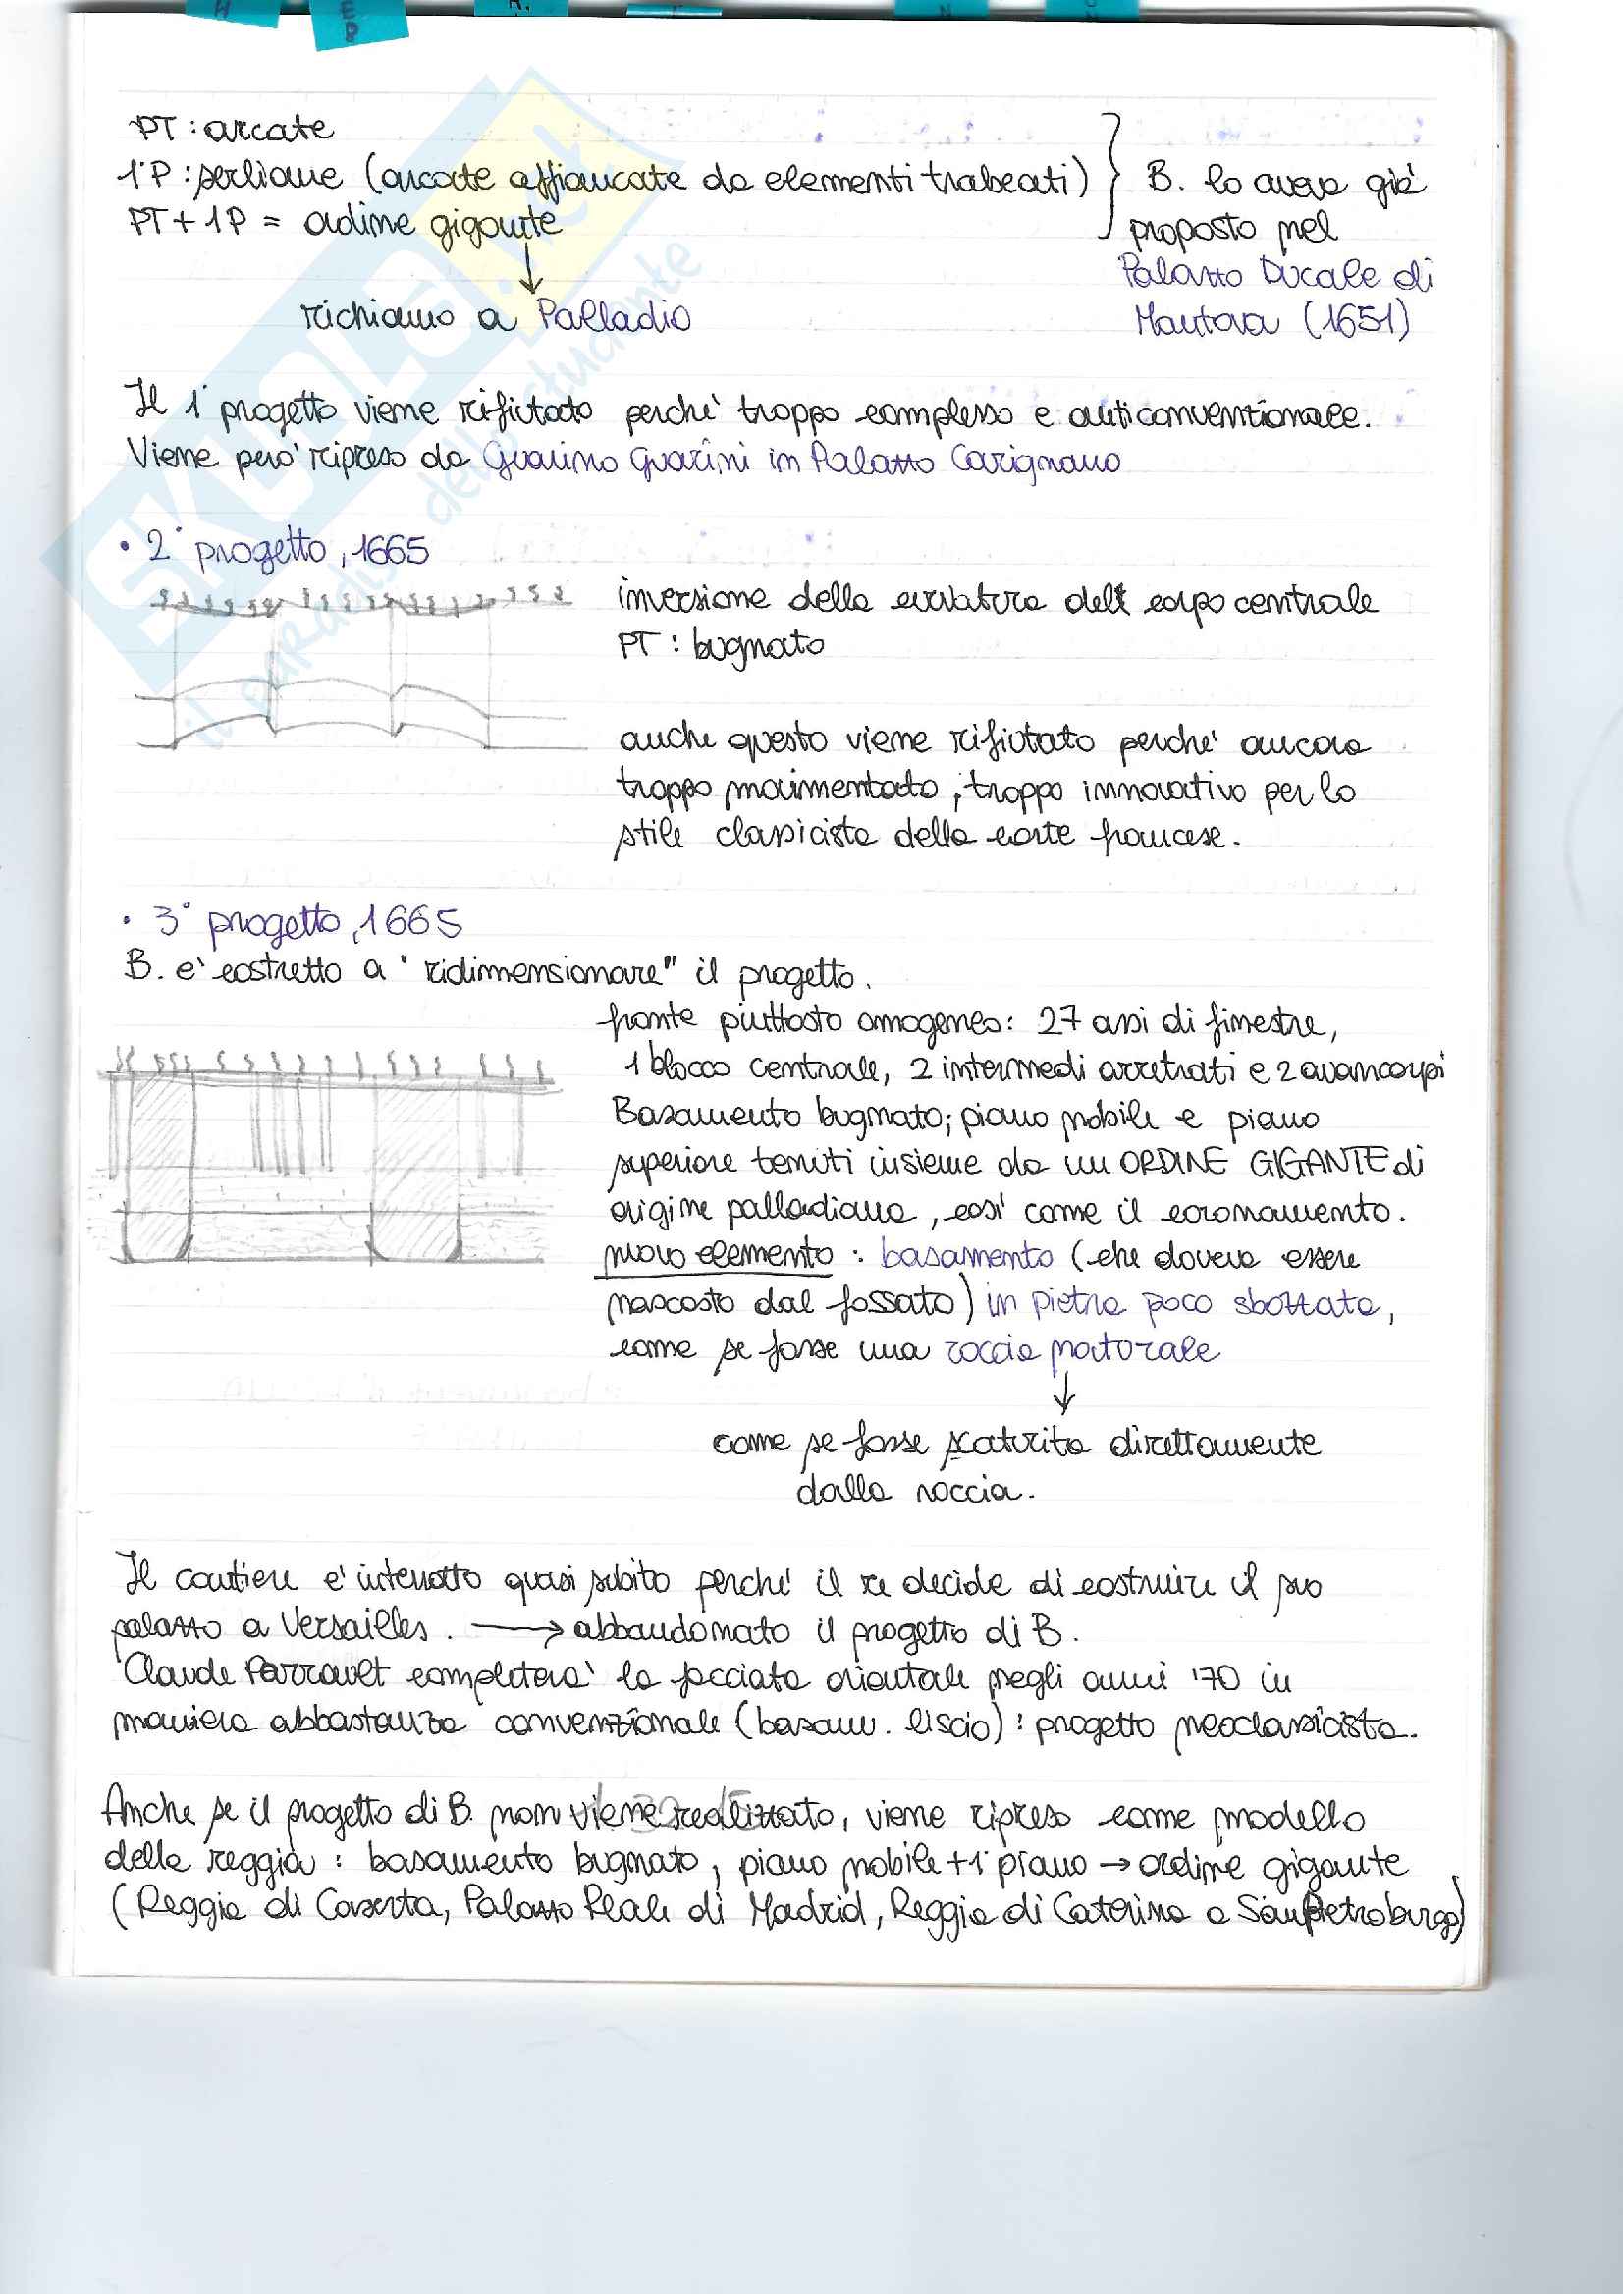 PT: arcate
1°P: serliane (arcate affiancate da elementi trabeati)
PT + 1P = ordine gigante
richiamo a Palladio
B. lo aveva già
proposto nel
Palazzo Ducale di
Mantova (1651)
Il 1° progetto viene rifiutato perché troppo complesso e anticonvenzionale.
Viene però ripreso da Guarino Guarini in Palazzo Carignano
• 2° progetto, 1665
inversione della curvatura del corpo centrale
PT: bugnato
anche questo viene rifiutato perché ancora
troppo movimentato, troppo innovativo per lo
stile classicista della corte francese.
• 3° progetto, 1665
B. è costretto a "ridimensionare" il progetto.
fronte piuttosto omogeneo: 27 assi di finestre,
1 blocco centrale, 2 intermedi arretrati e 2 avancorpi
Basamento bugnato; piano nobile e piano
superiore tenuti insieme da un ORDINE GIGANTE di
origine palladiana, così come il coronamento.
nuovo elemento: basamento (che doveva essere
nascosto dal fossato) in pietra poco sbozzata,
come se fosse una roccia naturale
come se fosse scaturita direttamente
dalla roccia.
Il cantiere è interrotto quasi subito perché il re decide di costruire il suo
palazzo a Versailles. → abbandonato il progetto di B.
Claude Parrault completerà la facciata orientale negli anni '70 in
maniera abbastanza convenzionale (basam. liscio): progetto neoclassicista.
Anche se il progetto di B. non viene realizzato, viene ripreso come modello
della reggia: basamento bugnato, piano nobile + 1° piano → ordine gigante
(Reggia di Caserta, Palazzo Reale di Madrid, Reggia di Caterina a San Pietroburgo)
SKUOLA.net
il paradiso dello studente